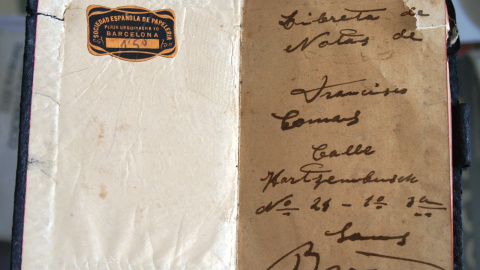 SOCIEDAD ESPAÑOLA DE PAPELERIA
PLAZA URQUINAONA 10
BARCELONA
Libreta de
Notas de
Francisco
Comas
Calle
Hartzembusch
Nº 21 - 1º 3ª
Sans